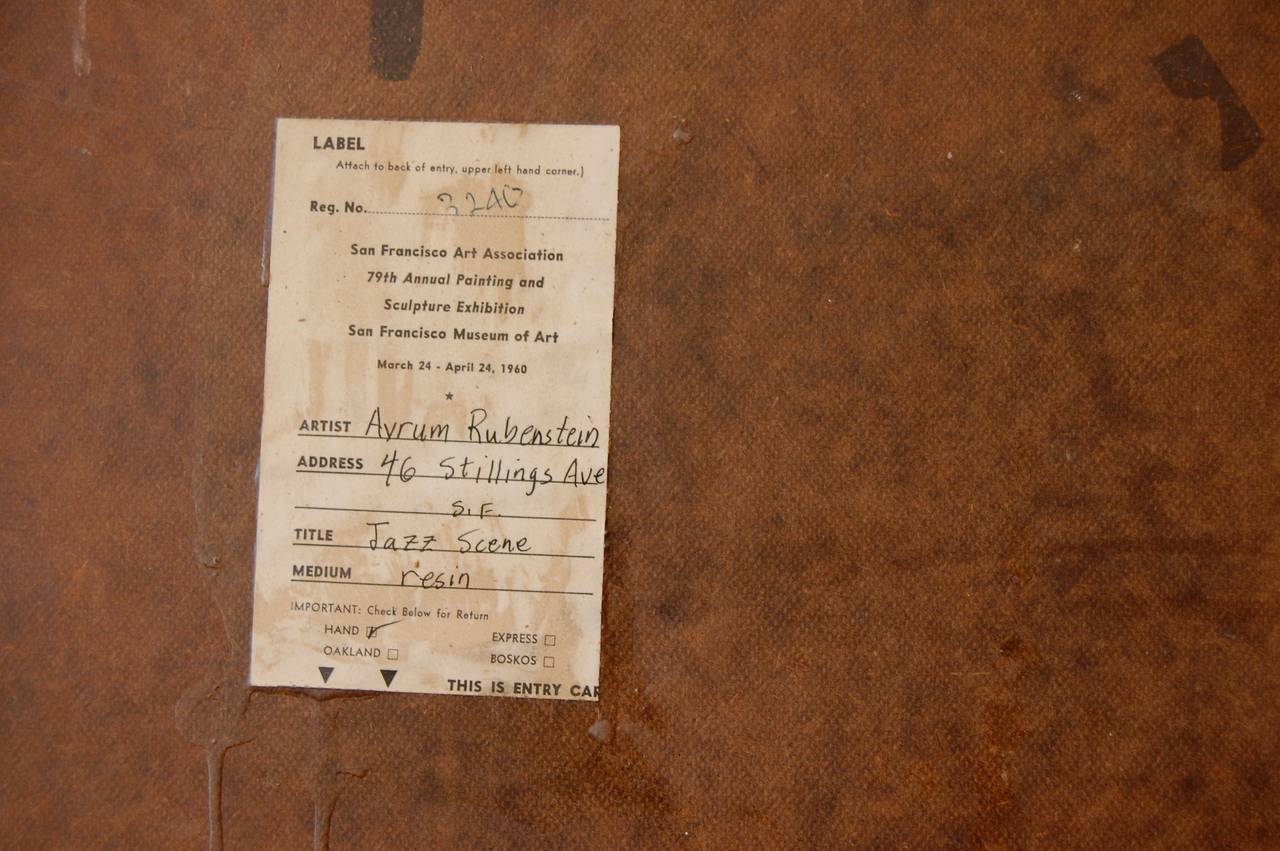 LABEL
Attach to back of entry, upper left hand corner.)
Reg. No. 3240
San Francisco Art Association
79th Annual Painting and
Sculpture Exhibition
San Francisco Museum of Art
March 24 - April 24, 1960
★
ARTIST Avrum Rubenstein
ADDRESS 46 Stillings Ave
S.F.
TITLE Jazz Scene
MEDIUM resin
IMPORTANT: Check Below for Return
HAND ☑ EXPRESS ☐
OAKLAND ☐ BOSKOS ☐
▼ ▼ THIS IS ENTRY CAR